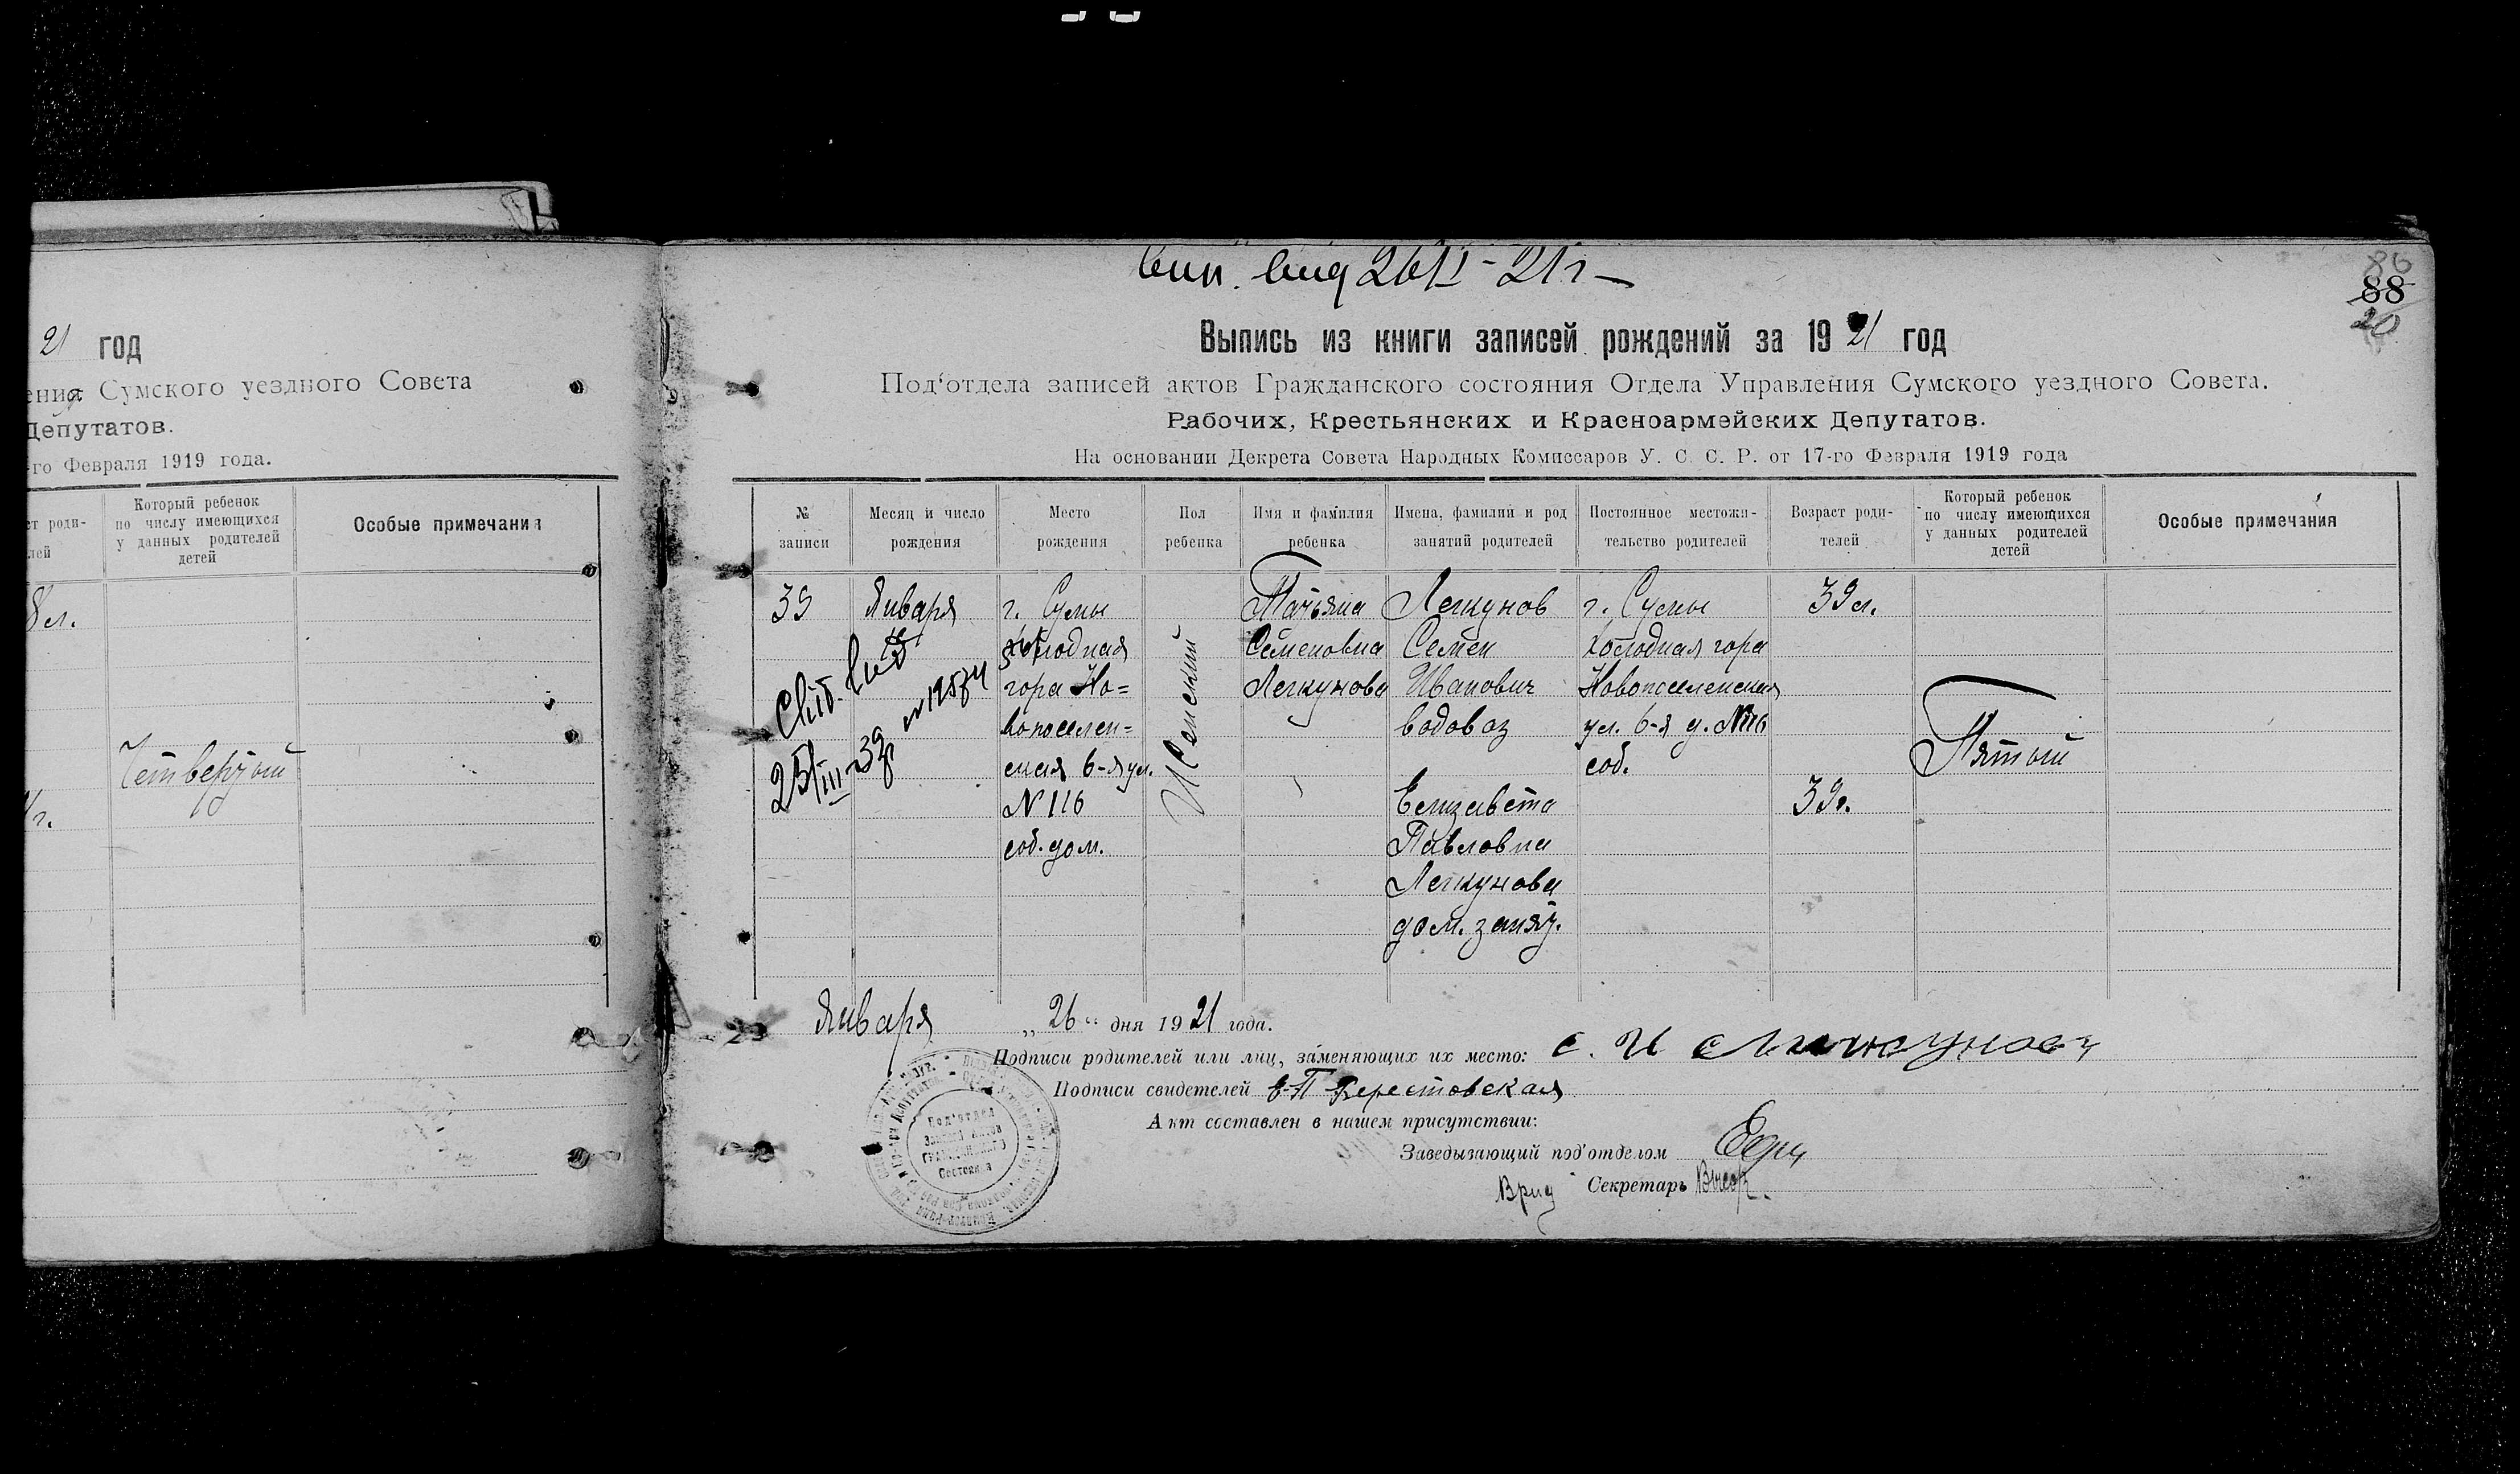 21 год
ения Сумского уездного Совета
Депутатов.
-го Февраля 1919 года.
ст роди-
лей
Который ребенок
по числу имеющихся
у данных родителей
детей
Особые примечания
8 л.
Четвертый
г.
вид 26/I - 21 г
86
88
20
Выпись из книги записей рождений за 1921 год
Под‘отдела записей актов Гражданского состояния Отдела Управления Сумского уездного Совета.
Рабочих, Крестьянских и Красноармейских Депутатов.
На основании Декрета Совета Народных Комиссаров У. С. С. Р. от 17-го Февраля 1919 года
№
записи
Месяц и число
рождения
Место
рождения
Пол
ребенка
Имя и фамилия
ребенка
Имена, фамилии и род
занятий родителей
Постоянное местожи-
тельство родителей
Возраст роди-
телей
Который ребенок
по числу имеющихся
у данных родителей
детей
Особые примечания
39
Января
25/III 39р
г. Сумы
Холодная
гора Но-
вопоселен-
ская 6-я ул.
№ 116
соб. дом.
Женский
Татьяна
Семеновна
Легкунова
Легкунов
Семен
Иванович
водовоз
Елизавета
Павловна
Легкунова
дом. занят.
г. Сумы
Холодная гора
Новопоселенская
ул. 6-я д. №116
соб.
39 л.
39 г.
Пятый
Января „26“ дня 1921 года.
Подписи родителей или лиц, заменяющих их место: С. И
Подписи свидетелей Берестовская
Акт составлен в нашем присутствии:
Заведывающий под‘отделом
Врид Секретарь
Под‘отдел
Записи Актов
Гражданского
Состояния